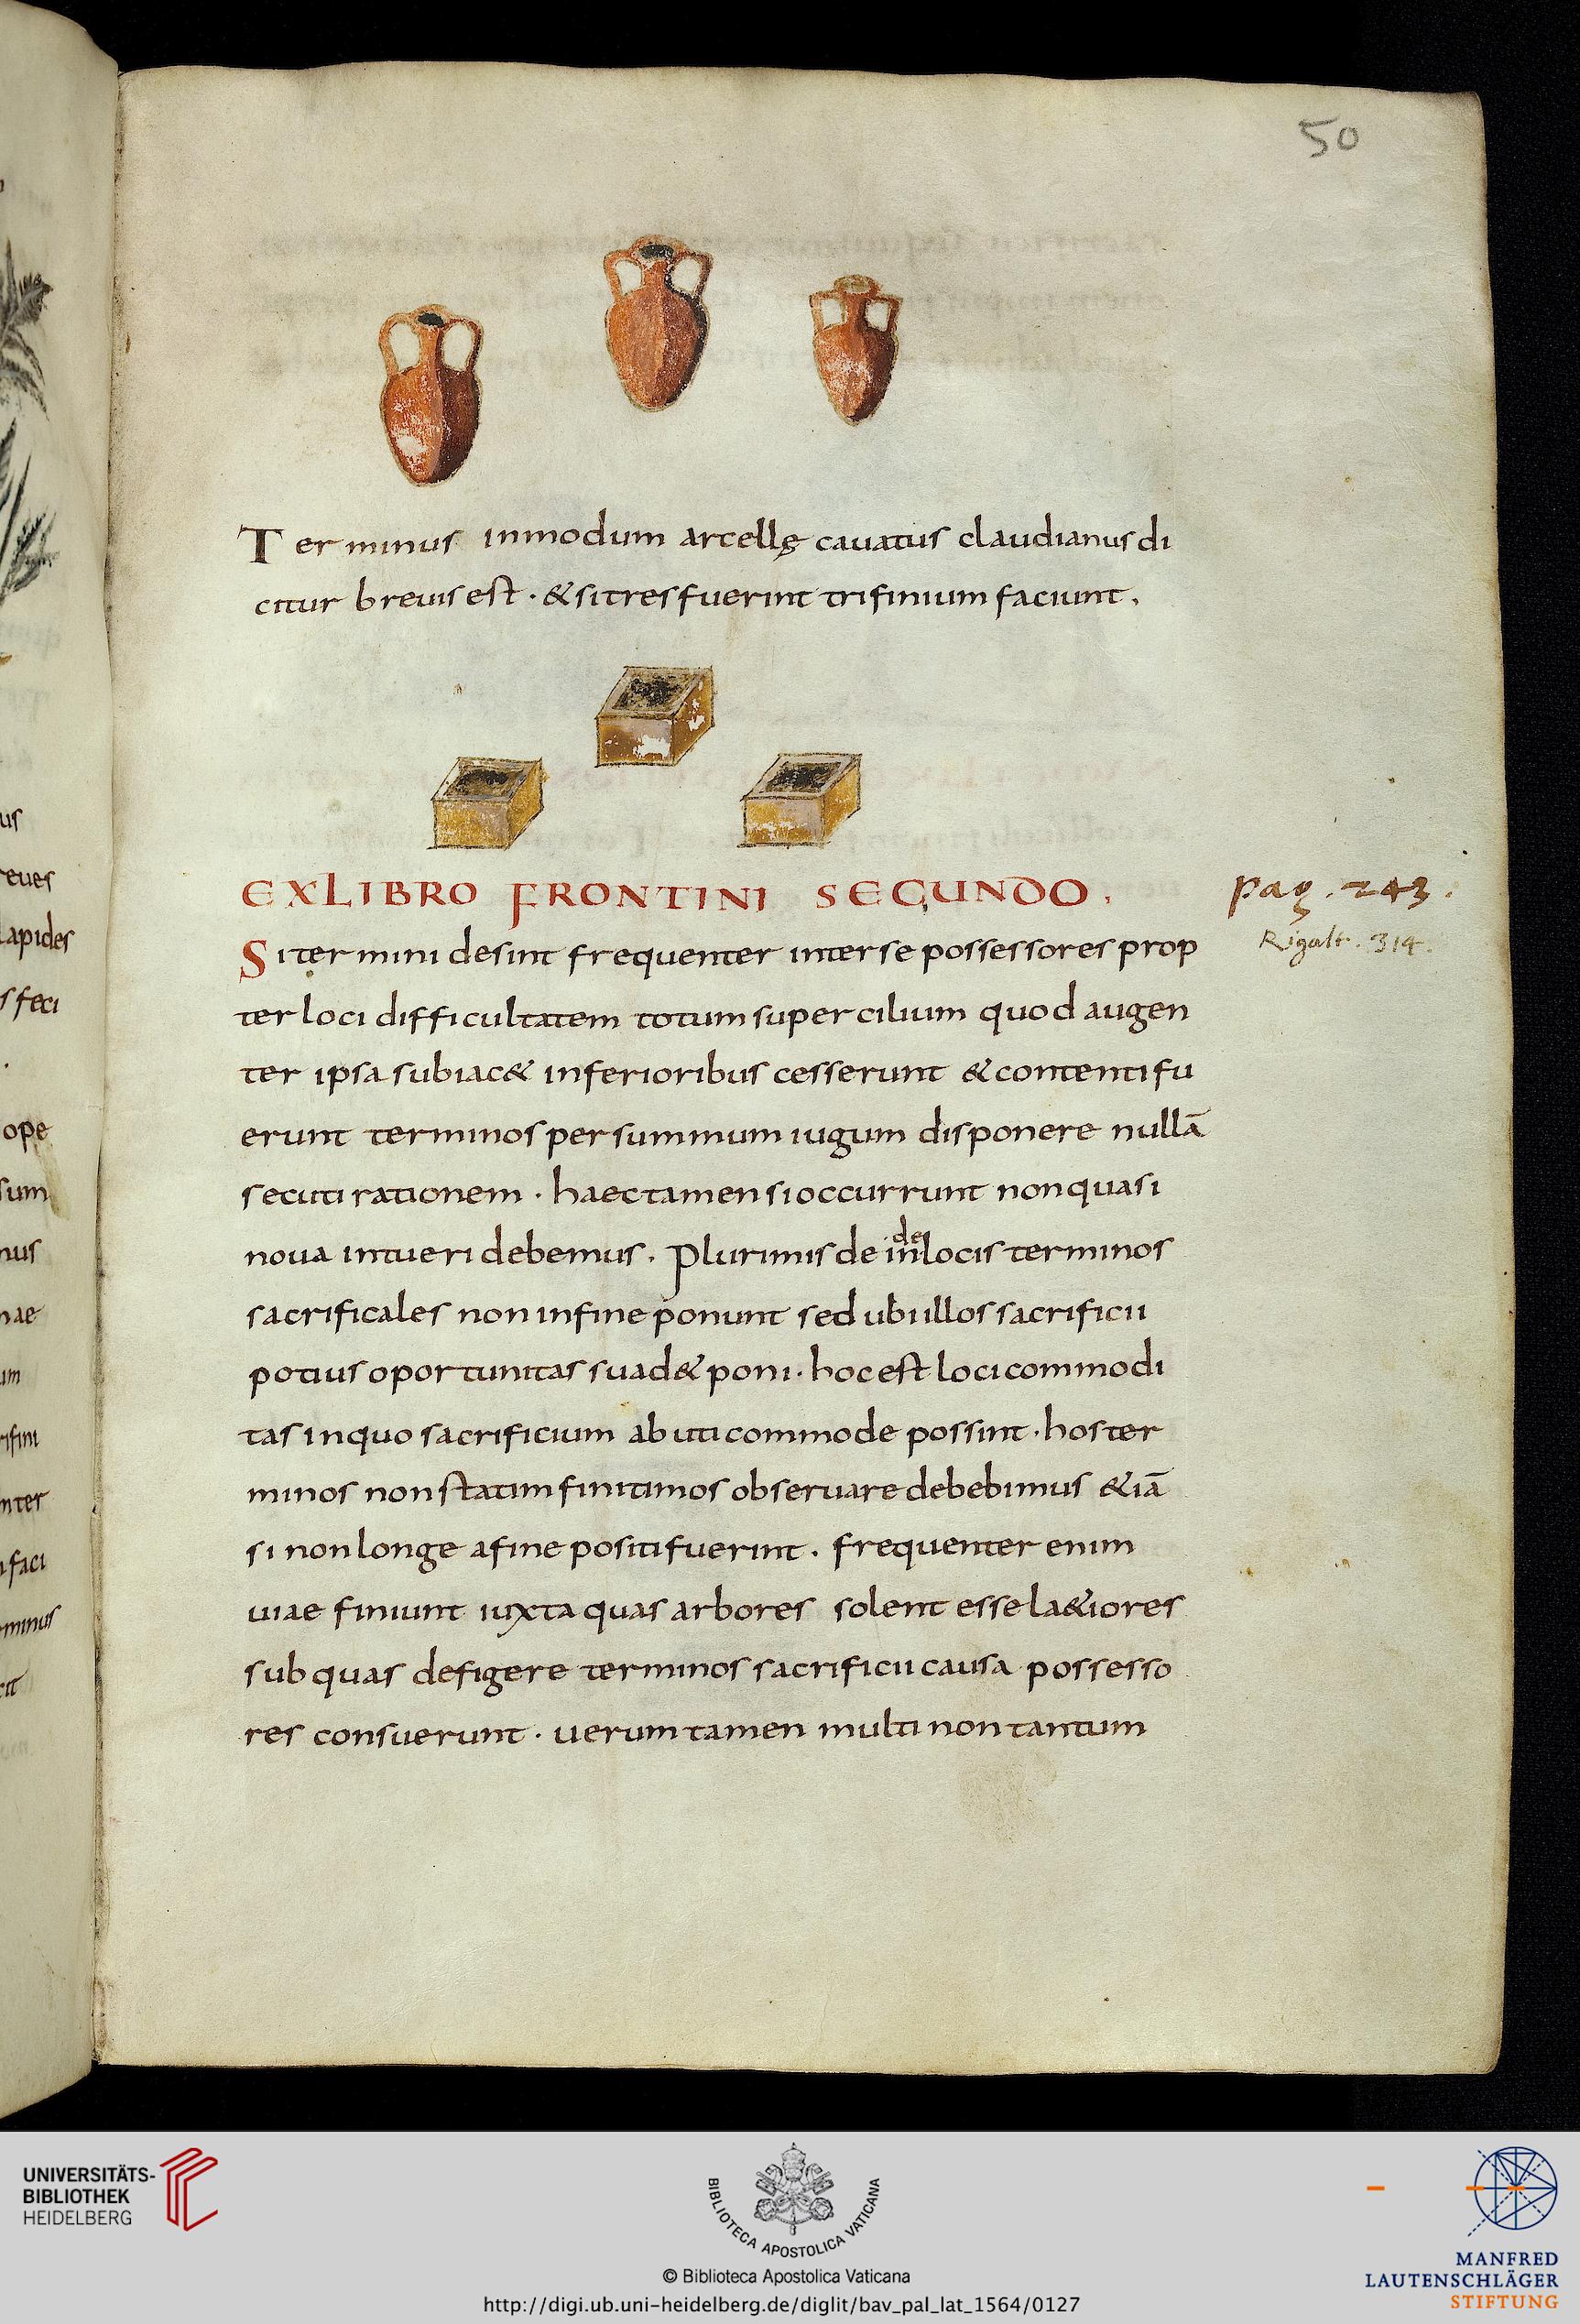 50
Terminus inmodum arcellę cauatus claudianus di
citur breuis est · & si tres fuerint trifinium faciunt.
EX LIBRO FRONTINI SECUNDO.
pag. 243.
Rigalt. 314.
Si termini desint frequenter inter se possessores prop
ter loci difficultatem totum super cilium quod augen
ter ipsa subiac& inferioribus cesserunt & contenti fu
erunt terminos per summum iugum disponere nullā
secuti rationem · haec tamen si occurrunt non quasi
noua intueri debemus. Plurimis de in locis terminos
de
sacrificales non in fine ponunt sed ubi illos sacrificii
potius oportunitas suad& poni · hoc est loci commodi
tas in quo sacrificium ab uti commode possint · hos ter
minos non statim finitimos obseruare debebimus &iā
si non longe a fine positi fuerint. frequenter enim
uiae finiunt iuxta quas arbores solent esse la&iores
sub quas defigere terminos sacrificii causa possesso
res consuerunt · uerum tamen multi non tantum
us
reues
lapides
s feci
ope
sum
nus
nae
um
rifini
nter
faci
minus
UNIVERSITÄTS-
BIBLIOTHEK
HEIDELBERG
BIBLIOTECA APOSTOLICA VATICANA
© Biblioteca Apostolica Vaticana
http://digi.ub.uni-heidelberg.de/diglit/bav_pal_lat_1564/0127
MANFRED
LAUTENSCHLÄGER
STIFTUNG